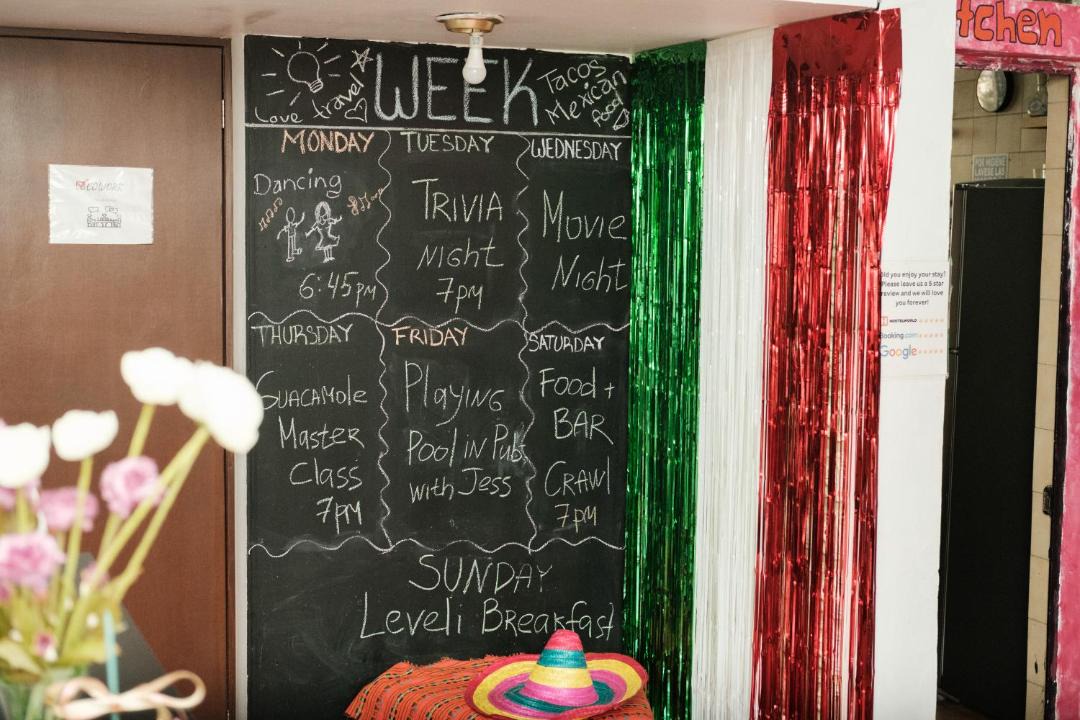 WEEK
Love travel
Tacos
Mexican
food
MONDAY
Dancing
6:45pm
TUESDAY
TRIVIA
NIGHT
7pm
WEDNESDAY
MOVIE
NIGHT
THURSDAY
GUACAMOLE
Master
Class
7pm
FRIDAY
Playing
Pool in Pub
with Jess
SATURDAY
Food +
BAR
CRAWL
7pm
SUNDAY
Leveli Breakfast
tchen
POR HIGIENE
LAVESE LAS
Did you enjoy your stay?
Please leave us a 5 star
review and we will love
you forever!
HOSTELWORLD
Booking.com
Google